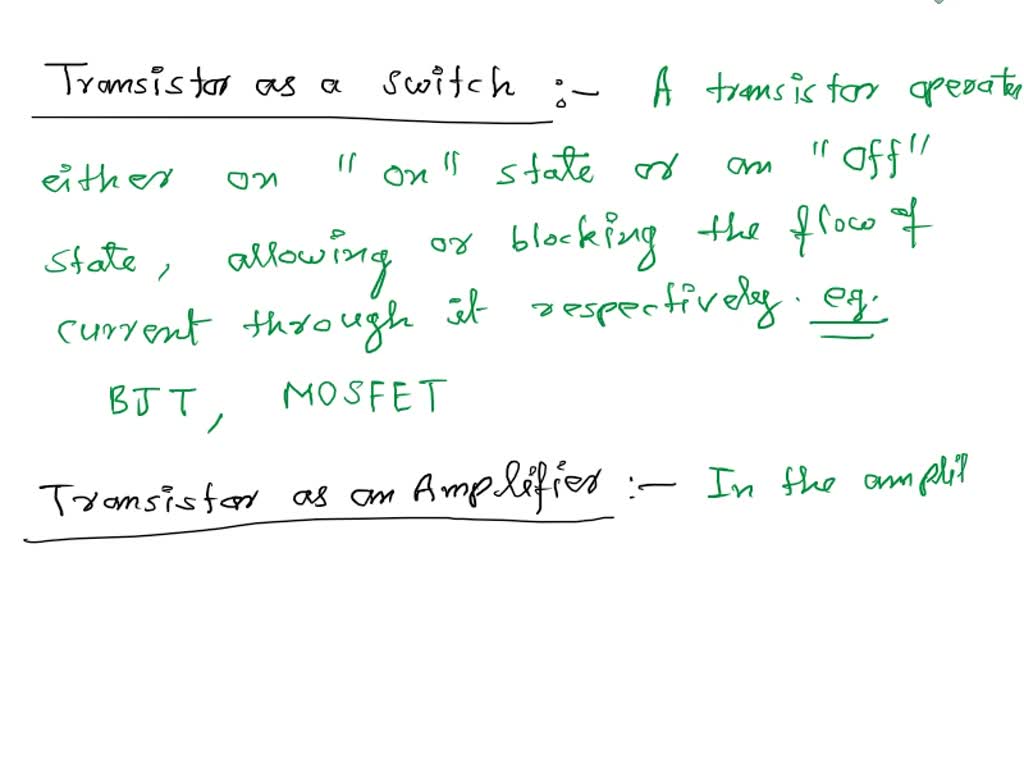 Transistor as a switch :- A transistor operates
either on "on" state or an "off"
state, allowing or blocking the flow of
current through it respectively. eg.
BJT, MOSFET
Transistor as an Amplifier :- In the amplif